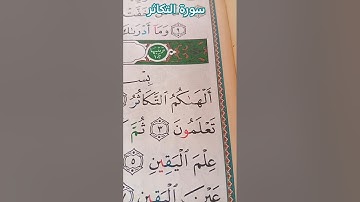 سورة التكاثر
۹ وَمَا أَدْرَىٰكَ
بِسْـ
أَلْهَىٰكُمُ ٱلتَّكَاثُرُ
تَعْلَمُونَ ۳ ثُمَّ
عِلْمَ ٱلْيَقِينِ ٥
عَيْنَ ٱلْيَقِينِ ۷